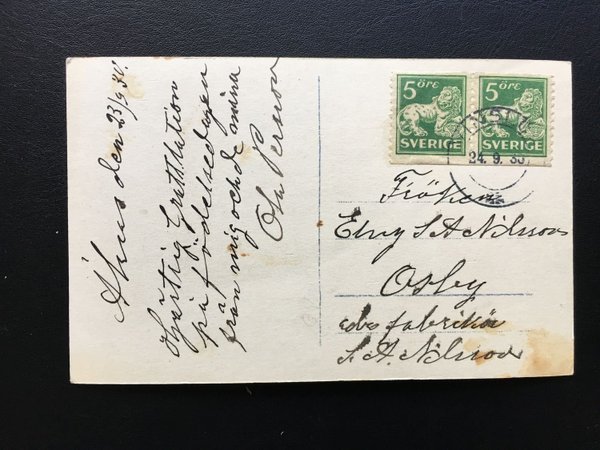 Åhus den 23/9 30.
Hjärtlig Gratulation
på födelsedagen
från mig och de mina
Ola Persson
5 ÖRE
SVERIGE
5 ÖRE
SVERIGE
24. 9. 30
Fröken
Elny S. A. Nilsson
Osby
adr. fabrikör
S. A. Nilsson